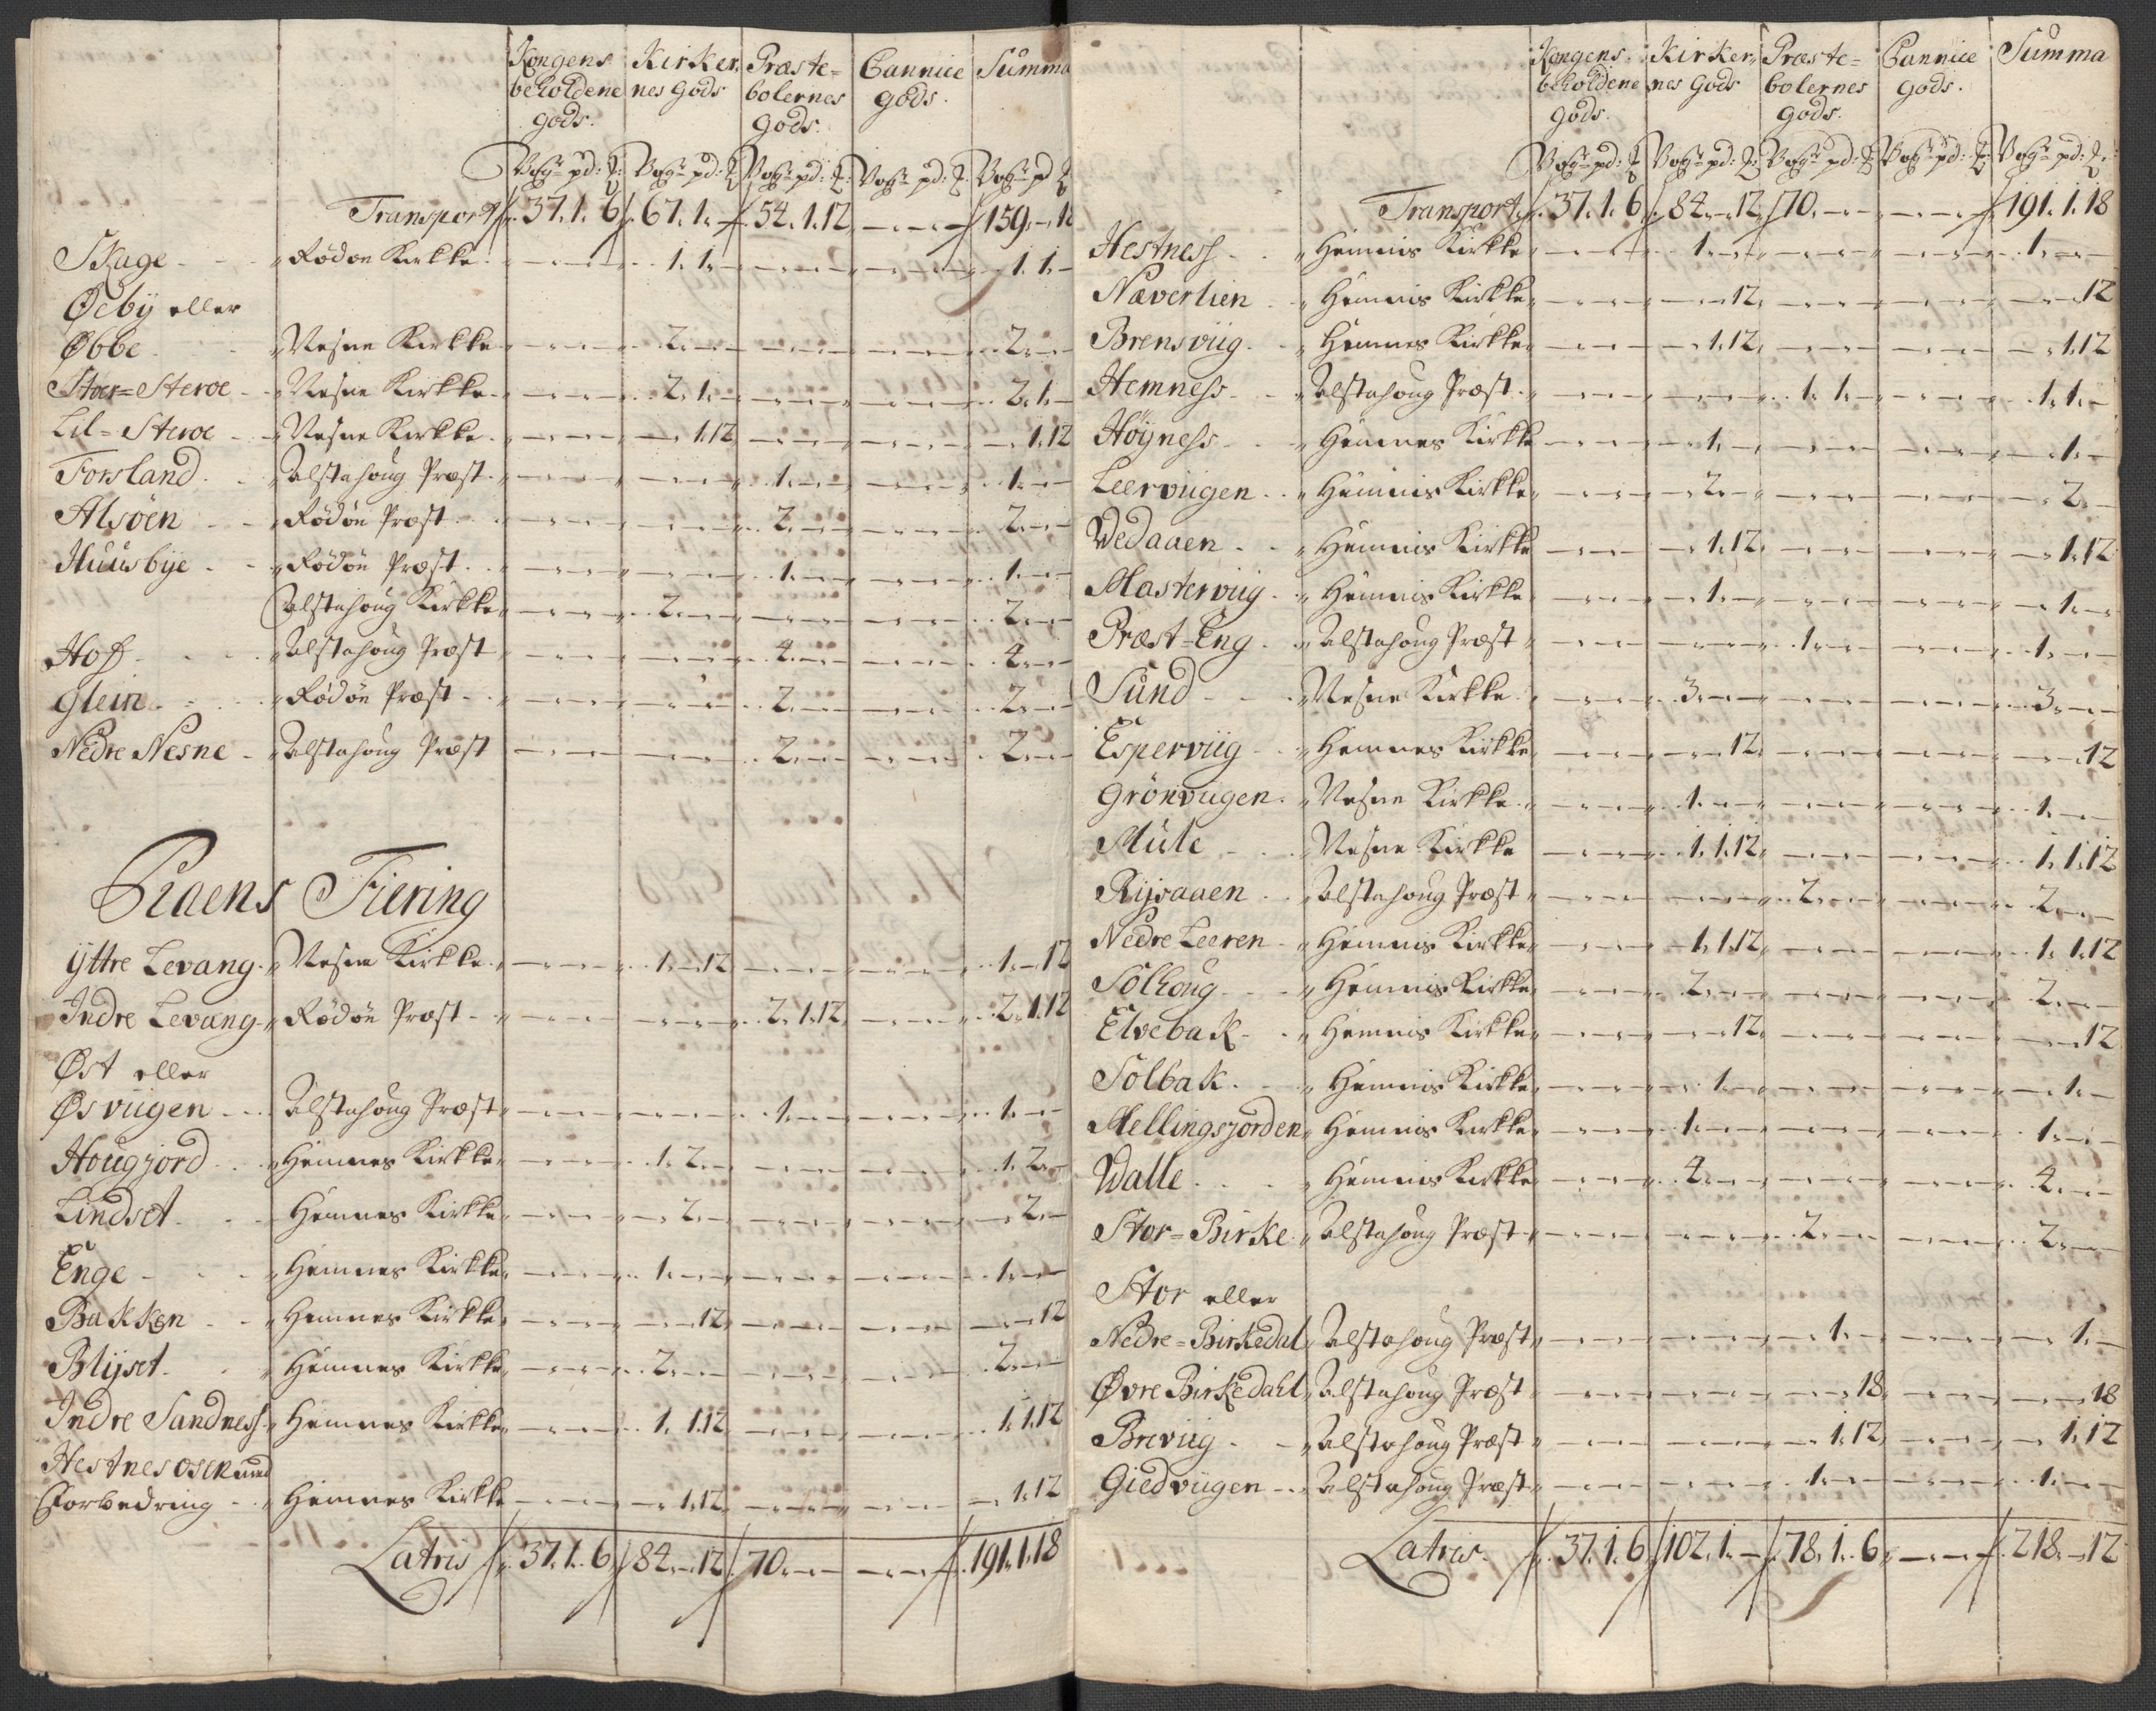 Kongens beholdene gods. Kirkernes Gods Præstebolernes gods. Cannice gods. Summa
Vogr pd: Vogr pd: Vogr pd: Vogr pd: Vogr pd
Transport 37. 1. 6 67. 1. - 54. 1. 12 - - - 159. - 18
Skage - Rødøe Kirkke - - - 1. 1. - - - - - - - 1. 1. -
Øeby eller
Øbbe - Nesne Kirkke - - - 2. - - - - - - - - 2. - -
Stoer=Steroe - Nesne Kirkke - - - 2. 1. - - - - - - - 2. 1. -
Lil=Steroe - Nesne Kirkke - - - - 1. 12 - - - - - - - 1. 12
Forsland - Alstahoug Præst - - - - - - 1. - - - - - 1. - -
Alsøen - Rødøe Præst - - - - - - 2. - - - - - 2. - -
Huusbye - Rødøe Præst - - - - - - 1. - - - - - 1. - -
Alstahoug Kirkke - - - 2. - - - - - - - - 2. - -
Hof - Alstahoug Præst - - - - - - 4. - - - - - 4. - -
Glein - Rødøe Præst - - - - - - 2. - - - - - 2. - -
Nedre Nesne - Alstahoug Præst - - - - - - 2. - - - - - 2. - -
Fiering
Yttre Levang - Nesne Kirkke - - - 1. - 12 - - - - - - 1. - 12
Indre Levang - Rødøe Præst - - - - - - 2. 1. 12 - - - 2. 1. 12
Øst eller
Øsviigen - Alstahoug Præst - - - - - - 1. - - - - - 1. - -
Hougjord - Hemnes Kirkke - - - 1. 2. - - - - - - - 1. 2. -
Lindset - Hemnes Kirkke - - - - 2. - - - - - - - - 2. -
Enge - Hemnes Kirkke - - - 1. - - - - - - - - 1. - -
Bakken - Hemnes Kirkke - - - - - 12 - - - - - - - - 12
Blijset - Hemnes Kirkke - - - 2. - - - - - - - - 2. - -
Indre Sandness - Hemnes Kirkke - - - 1. 1. 12 - - - - - - 1. 1. 12
Hestnesosen med
Forbedring - Hemnes Kirkke - - - - 1. 12 - - - - - - - 1. 12
Latris 37. 1. 6 84. - 12 70. - - - - - 191. 1. 18
Kongens beholdene gods. Kirkernes Gods Præstebolernes gods. Cannice gods. Summa
Vogr pd: Vogr pd: Vogr pd: Vogr pd: Vogr pd:
Transport 37. 1. 6 84. - 12 70. - - - - - 191. 1. 18
Hestness - Hemnis Kirkke - - - 1. - - - - - - - - 1. - -
Næverlien - Hemnis Kirkke - - - - - 12 - - - - - - - - 12
Brensviig - Hemnes Kirkke - - - - 1. 12 - - - - - - - 1. 12
Hemness - Alstahoug Præst - - - - - - 1. 1. - - - - 1. 1. -
Høyness - Hemnes Kirkke - - - - 1. - - - - - - - - 1. -
Leerviigen - Hemnis Kirkke - - - - 2. - - - - - - - - 2. -
Wedaaen - Hemnis Kirkke - - - - 1. 12 - - - - - - - 1. 12
Masterviig - Hemnis Kirkke - - - - 1. - - - - - - - - 1. -
Præst=Eng - Alstahoug Præst - - - - - - 1. - - - - - 1. - -
Sund - Nesne Kirkke - - - 3. - - - - - - - - 3. - -
Esperviig - Hemnes Kirkke - - - - - 12 - - - - - - - - 12
Grönviigen - Nesne Kirkke - - - 1. - - - - - - - - 1. - -
Mule - Nesne Kirkke - - - 1. 1. 12 - - - - - - 1. 1. 12
Rijsaaen - Alstahoug Præst - - - - - - 2. - - - - - 2. - -
Nedre Leeren - Hemnis Kirkke - - - 1. 1. 12 - - - - - - 1. 1. 12
Solhoug - Hemnis Kirkke - - - 2. - - - - - - - - 2. - -
Elvebak - Hemnis Kirkke - - - - - 12 - - - - - - - - 12
Solbak - Hemnis Kirkke - - - - 1. - - - - - - - - 1. -
Mellingsjorden Hemnis Kirkke - - - 1. - - - - - - - - 1. - -
Walle - Hemnis Kirkke - - - 4. - - - - - - - - 4. - -
Stor=Birke Alstahoug Præst - - - - - - 2. - - - - - 2. - -
Stor eller
Nedre=Birkedal Alstahoug Præst - - - - - - - 1. - - - - - 1. -
Øvre Birkedahl Alstahoug Præst - - - - - - - - 18 - - - - - 18
Breviig - Alstahoug Præst - - - - - - - 1. 12 - - - - 1. 12
Giedviigen - Alstahoug Præst - - - - - - 1. - - - - - 1. - -
Latris. 37. 1. 6 102. 1. - 78. 1. 6 - - - 218. - 12